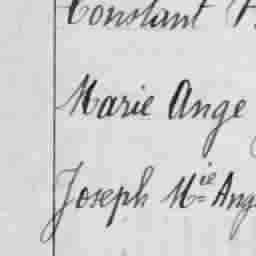 Constant
Marie Ange
Joseph Mie Ang